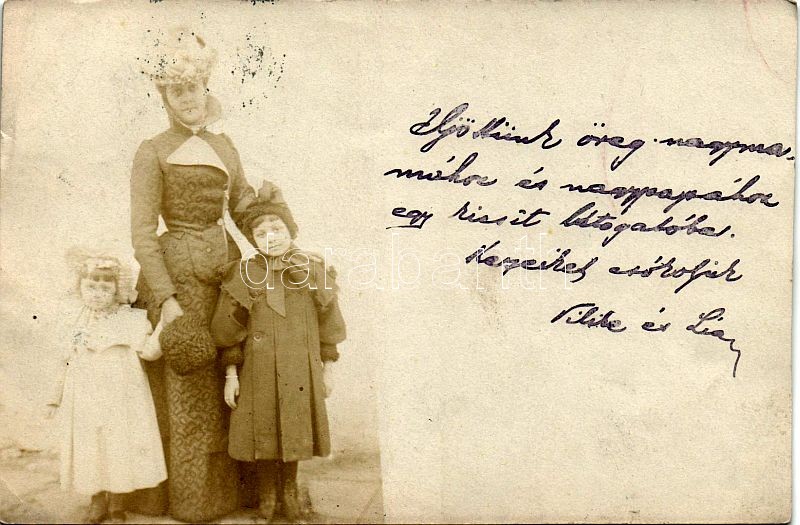 Eljöttünk öreg nagyma-
mához és nagypapához
egy kissit látogatóba.
Kezeiket csókoljuk
Vilike és Lia
darabanth